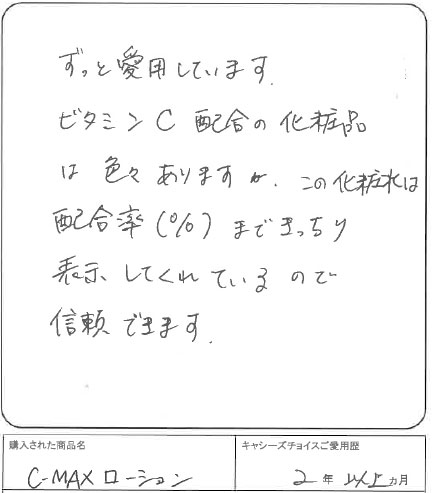 ずっと愛用しています.
ビタミンC配合の化粧品
は色々ありますが、この化粧水は
配合率(%)まできっちり
表示してくれているので
信頼できます.
購入された商品名
キャシーズチョイスご愛用歴
C-MAXローション
2年以上ヵ月